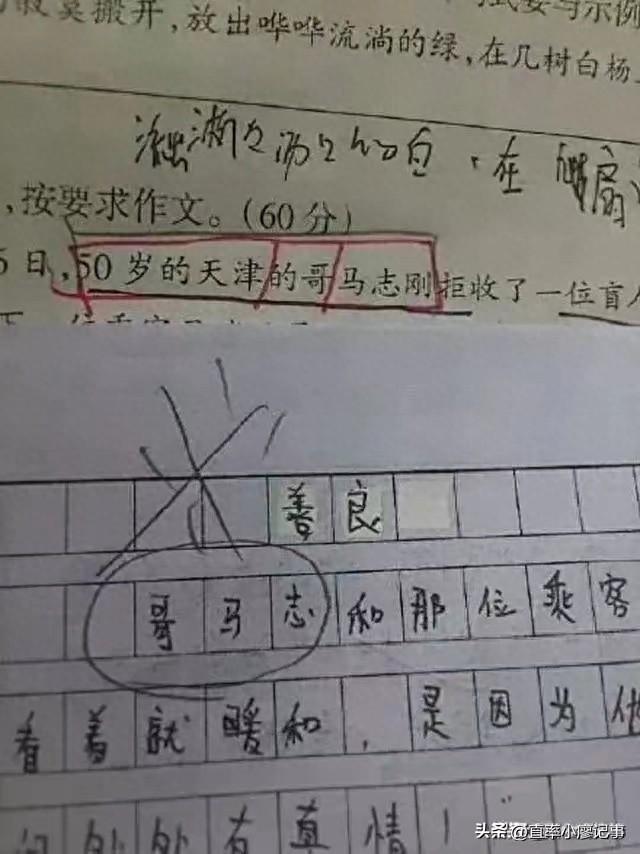 式要与示例
寂寞搬开，放出哗哗流淌的绿，在几树白杨
的白，在
，按要求作文。(60分)
5日，50岁的天津的哥马志刚拒收了一位盲人
善良
哥马志和那位乘客
看着就暖和，是因为他
间处处有真情！
头条@直率小廖记事